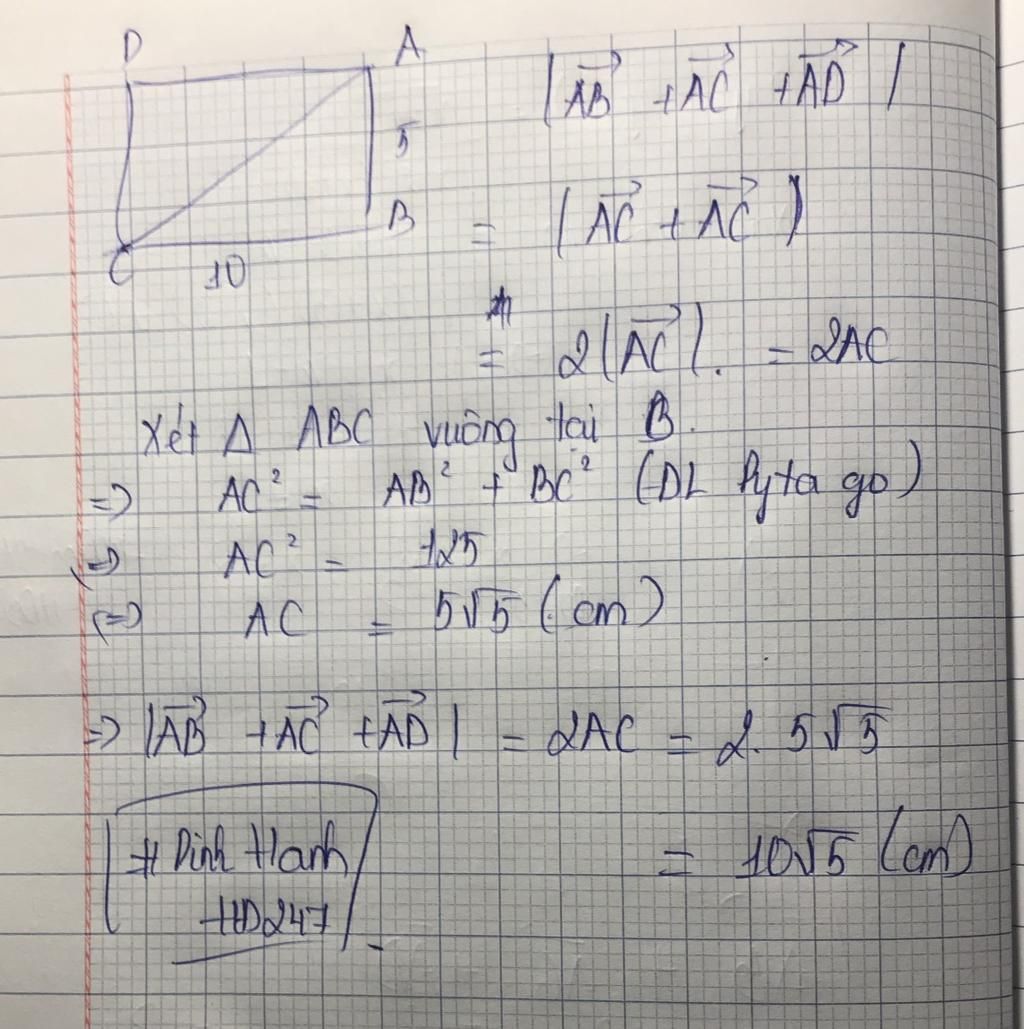 D A
5
B
C 10
|AB⃗ + AC⃗ + AD⃗|
= |AC⃗ + AC⃗|
= 2|AC⃗|. = 2AC
Xét Δ ABC vuông tại B.
=> AC² = AB² + BC² (ĐL Pytago)
(=) AC² = 125
(=) AC = 5√5 (cm)
=> |AB⃗ + AC⃗ + AD⃗| = 2AC = 2. 5√5
= 10√5 (cm)
# Dinh Hanh
HD247